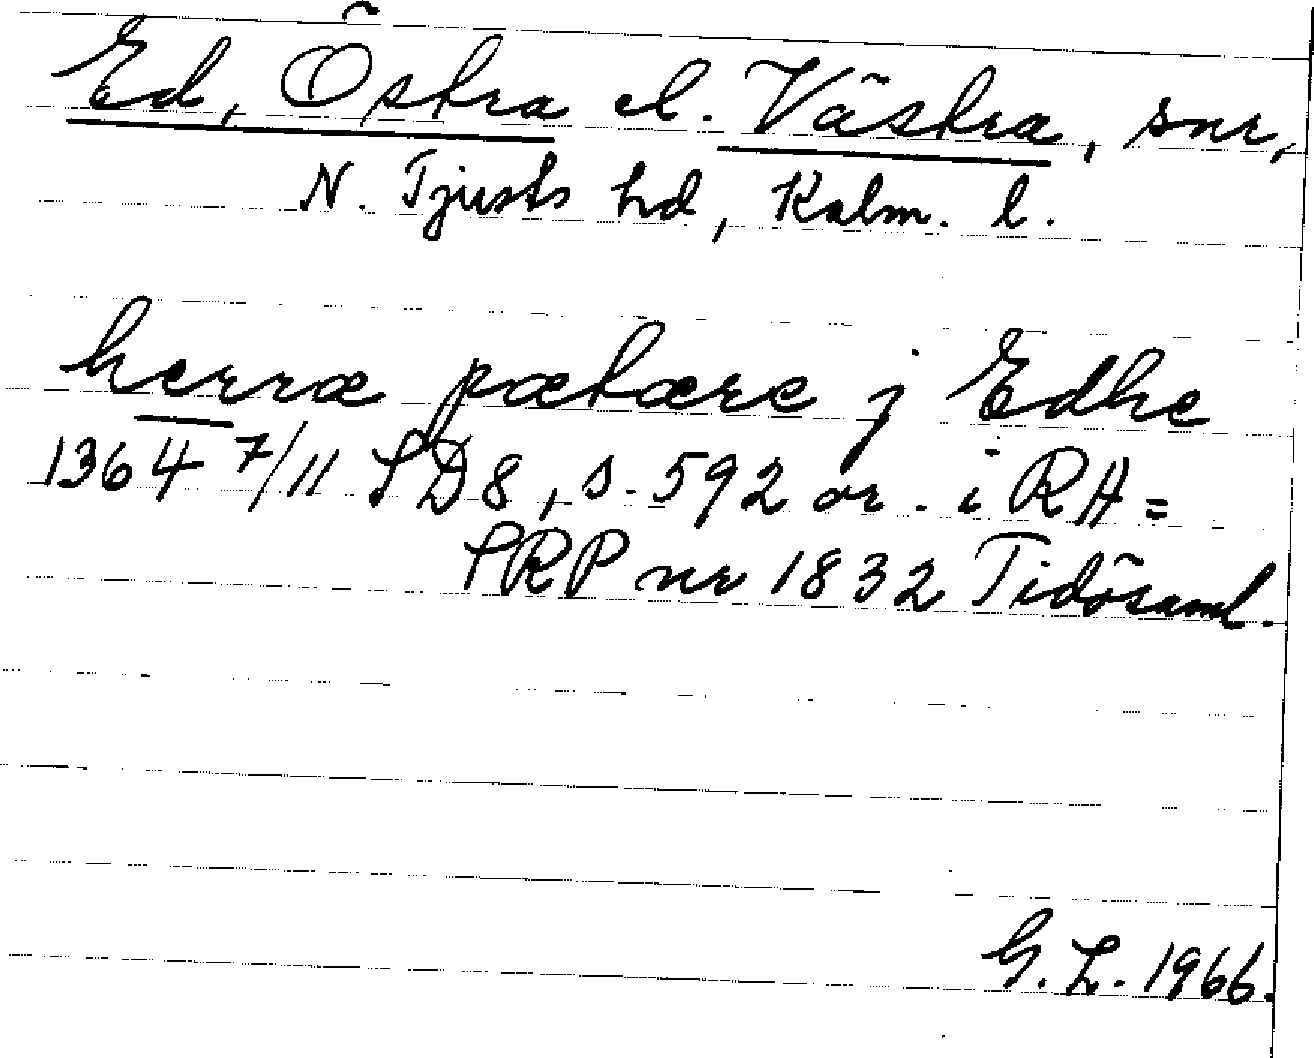 Ed, Östra el. Västra, snr,
N. Tjusts hd, Kalm. l.
herræ pætære j Edhe
1364 7/11 SD8, s. 592 or. i RA =
SRP nr 1832 Tidösaml.
G. L. 1966.